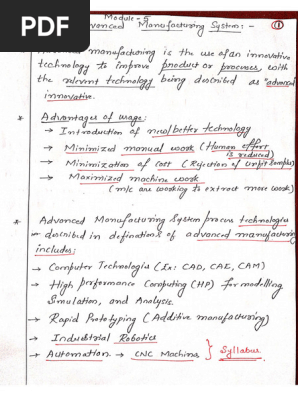 PDF
Module - 5
Advanced Manufacturing System:-
①
Advanced manufacturing is the use of an innovative
technology to improve product or processes, with
the relevent technology being described as "advanced
innovative.
* Advantages of usage:
→ Introduction of new/better technology
→ Minimized manual work (Human effort
is reduced)
→ Minimization of cost (Rejection of unfit samples)
→ Maximized machine work
(m/c are working to extract more work)
* Advanced Manufacturing System process technologies
- described in definations of advanced manufacturing
includes:
→ Computer Technologies (Ex: CAD, CAE, CAM)
→ High performance Computing (HP) for modelling
Simulation, and Analysis.
→ Rapid Prototyping (Additive manufacturing)
→ Industrial Robotics
→ Automation → CNC Machines } Syllabus